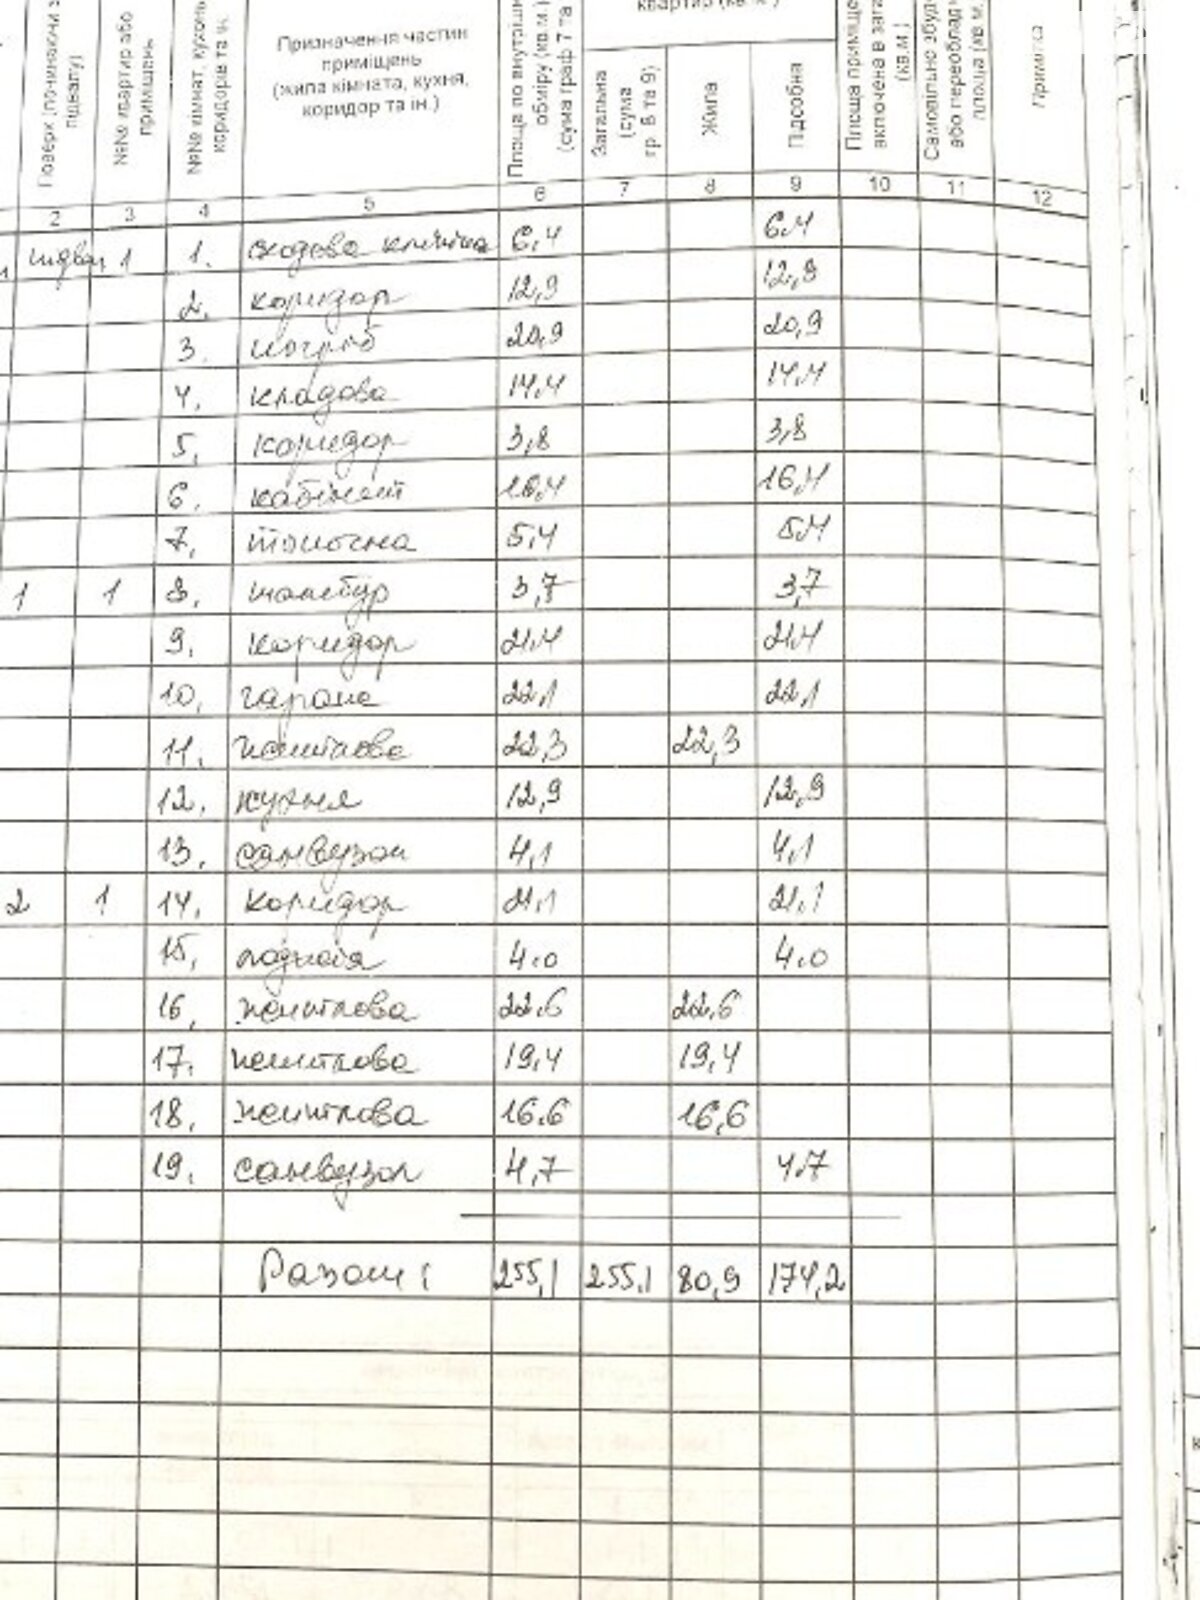 квартир (кв.м.)
Поверх (починаючи з підвалу)
№№ квартир або приміщень
№№ кімнат, кухонь коридорів та ін.
Призначення частин
приміщень
(жила кімната, кухня,
коридор та ін.)
Площа по внутрішн обміру (кв.м.) (сума граф 7 та
Загальна (сума гр. 8 та 9)
Жила
Підсобна
Площа приміщен включена в зага (кв.м.)
Самовільно збуд або переобладн площа (кв.м.
Примітка
2 3 4 5 6 7 8 9 10 11 12
підвал 1 1. сходова клітка 6,4 6,4
2. коридор 12,9 12,9
3. погріб 20,9 20,9
4. кладова 14,4 14,4
5. коридор 3,8 3,8
6. кабінет 16,4 16,4
7. топочна 5,4 5,4
1 1 8. тамбур 3,7 3,7
9. коридор 21,4 21,4
10. гараж 22,1 22,1
11. житлова 22,3 22,3
12. кухня 12,9 12,9
13. санвузол 4,1 4,1
2 1 14. коридор 21,1 21,1
15. лоджія 4.0 4.0
16. житлова 22.6 22,6
17. житлова 19,4 19,4
18. житлова 16.6 16,6
19. санвузол 4,7 4,7
Разом: 255,1 255,1 80,9 174,2